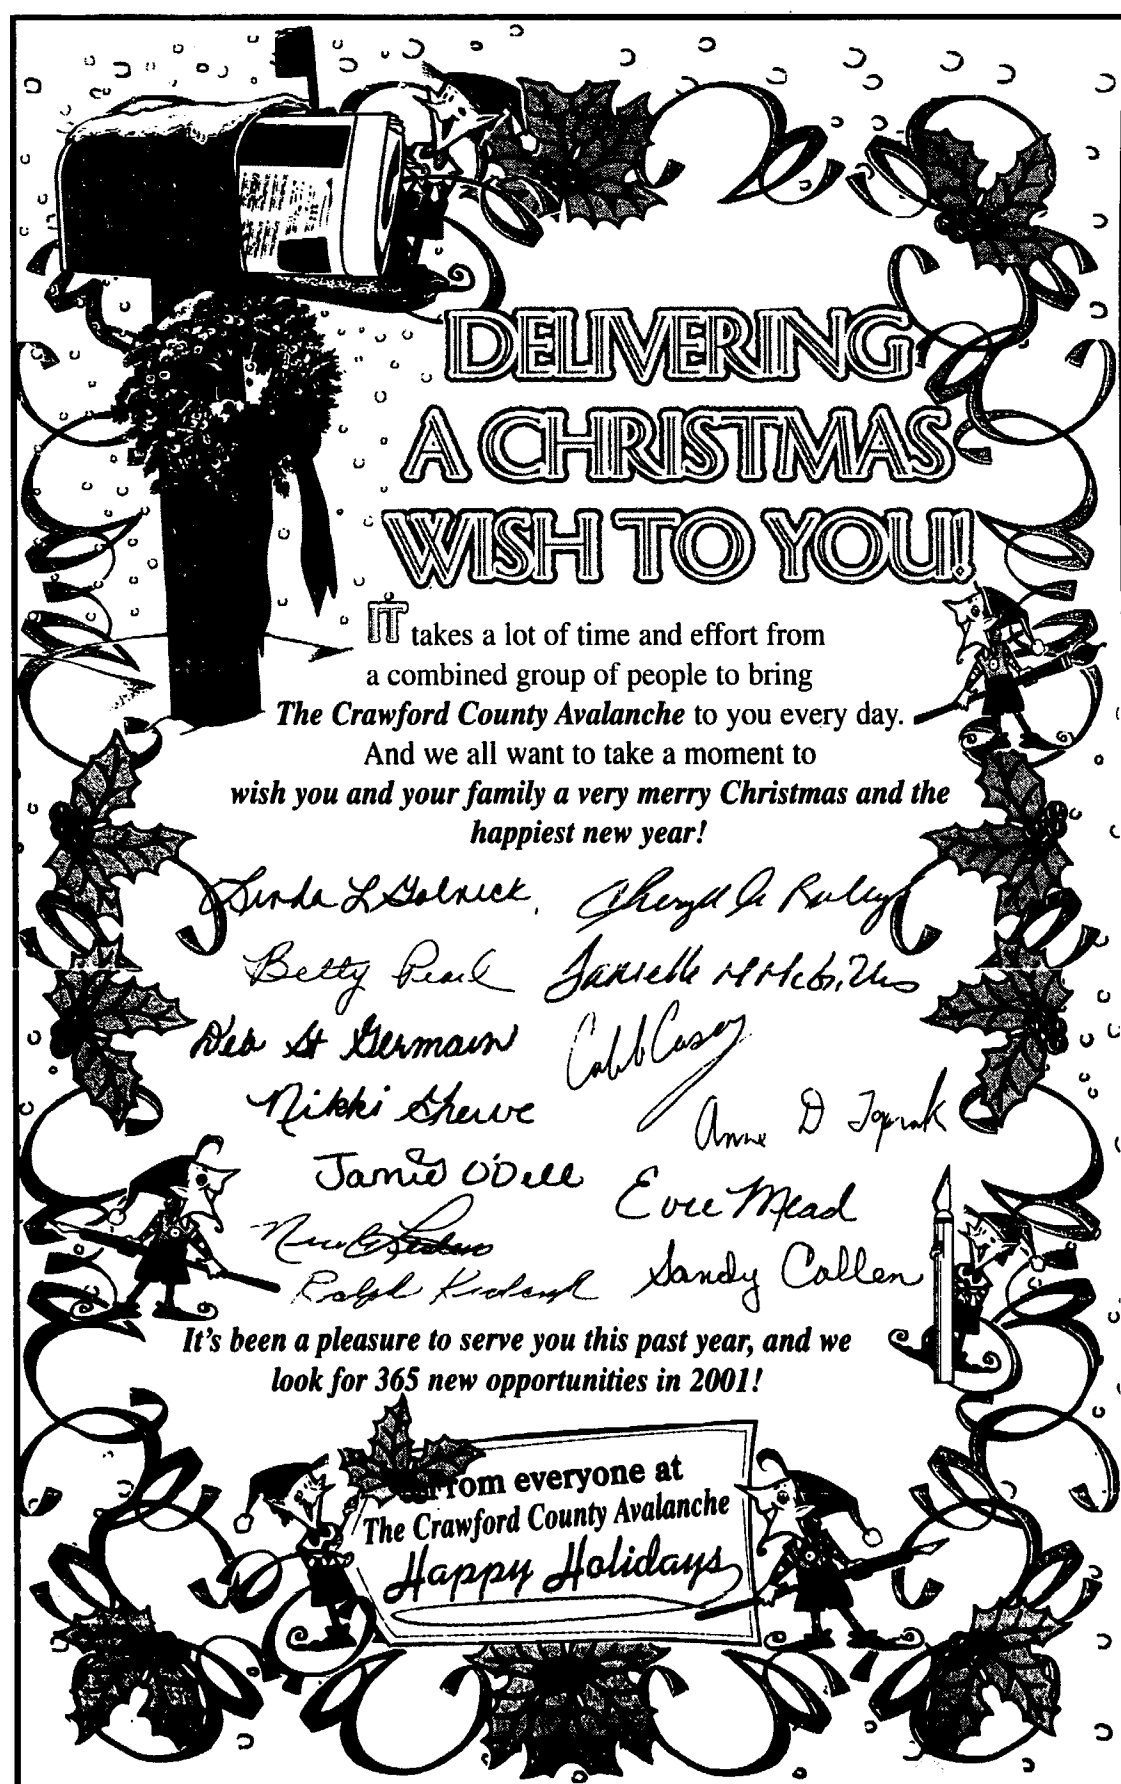 DELIVERING
A CHRISTMAS
WISH TO YOU!
IT takes a lot of time and effort from
a combined group of people to bring
The Crawford County Avalanche to you every day.
And we all want to take a moment to
wish you and your family a very merry Christmas and the
happiest new year!
Linda L Golnick
Cheryl A
Betty Pearl
Danielle M
Deb St Germain
Caleb Casey
Nikki Shewe
Anne D
Jamie O'Dell
Evie Mead
Ralph
Sandy Collen
It's been a pleasure to serve you this past year, and we
look for 365 new opportunities in 2001!
From everyone at
The Crawford County Avalanche
Happy Holidays